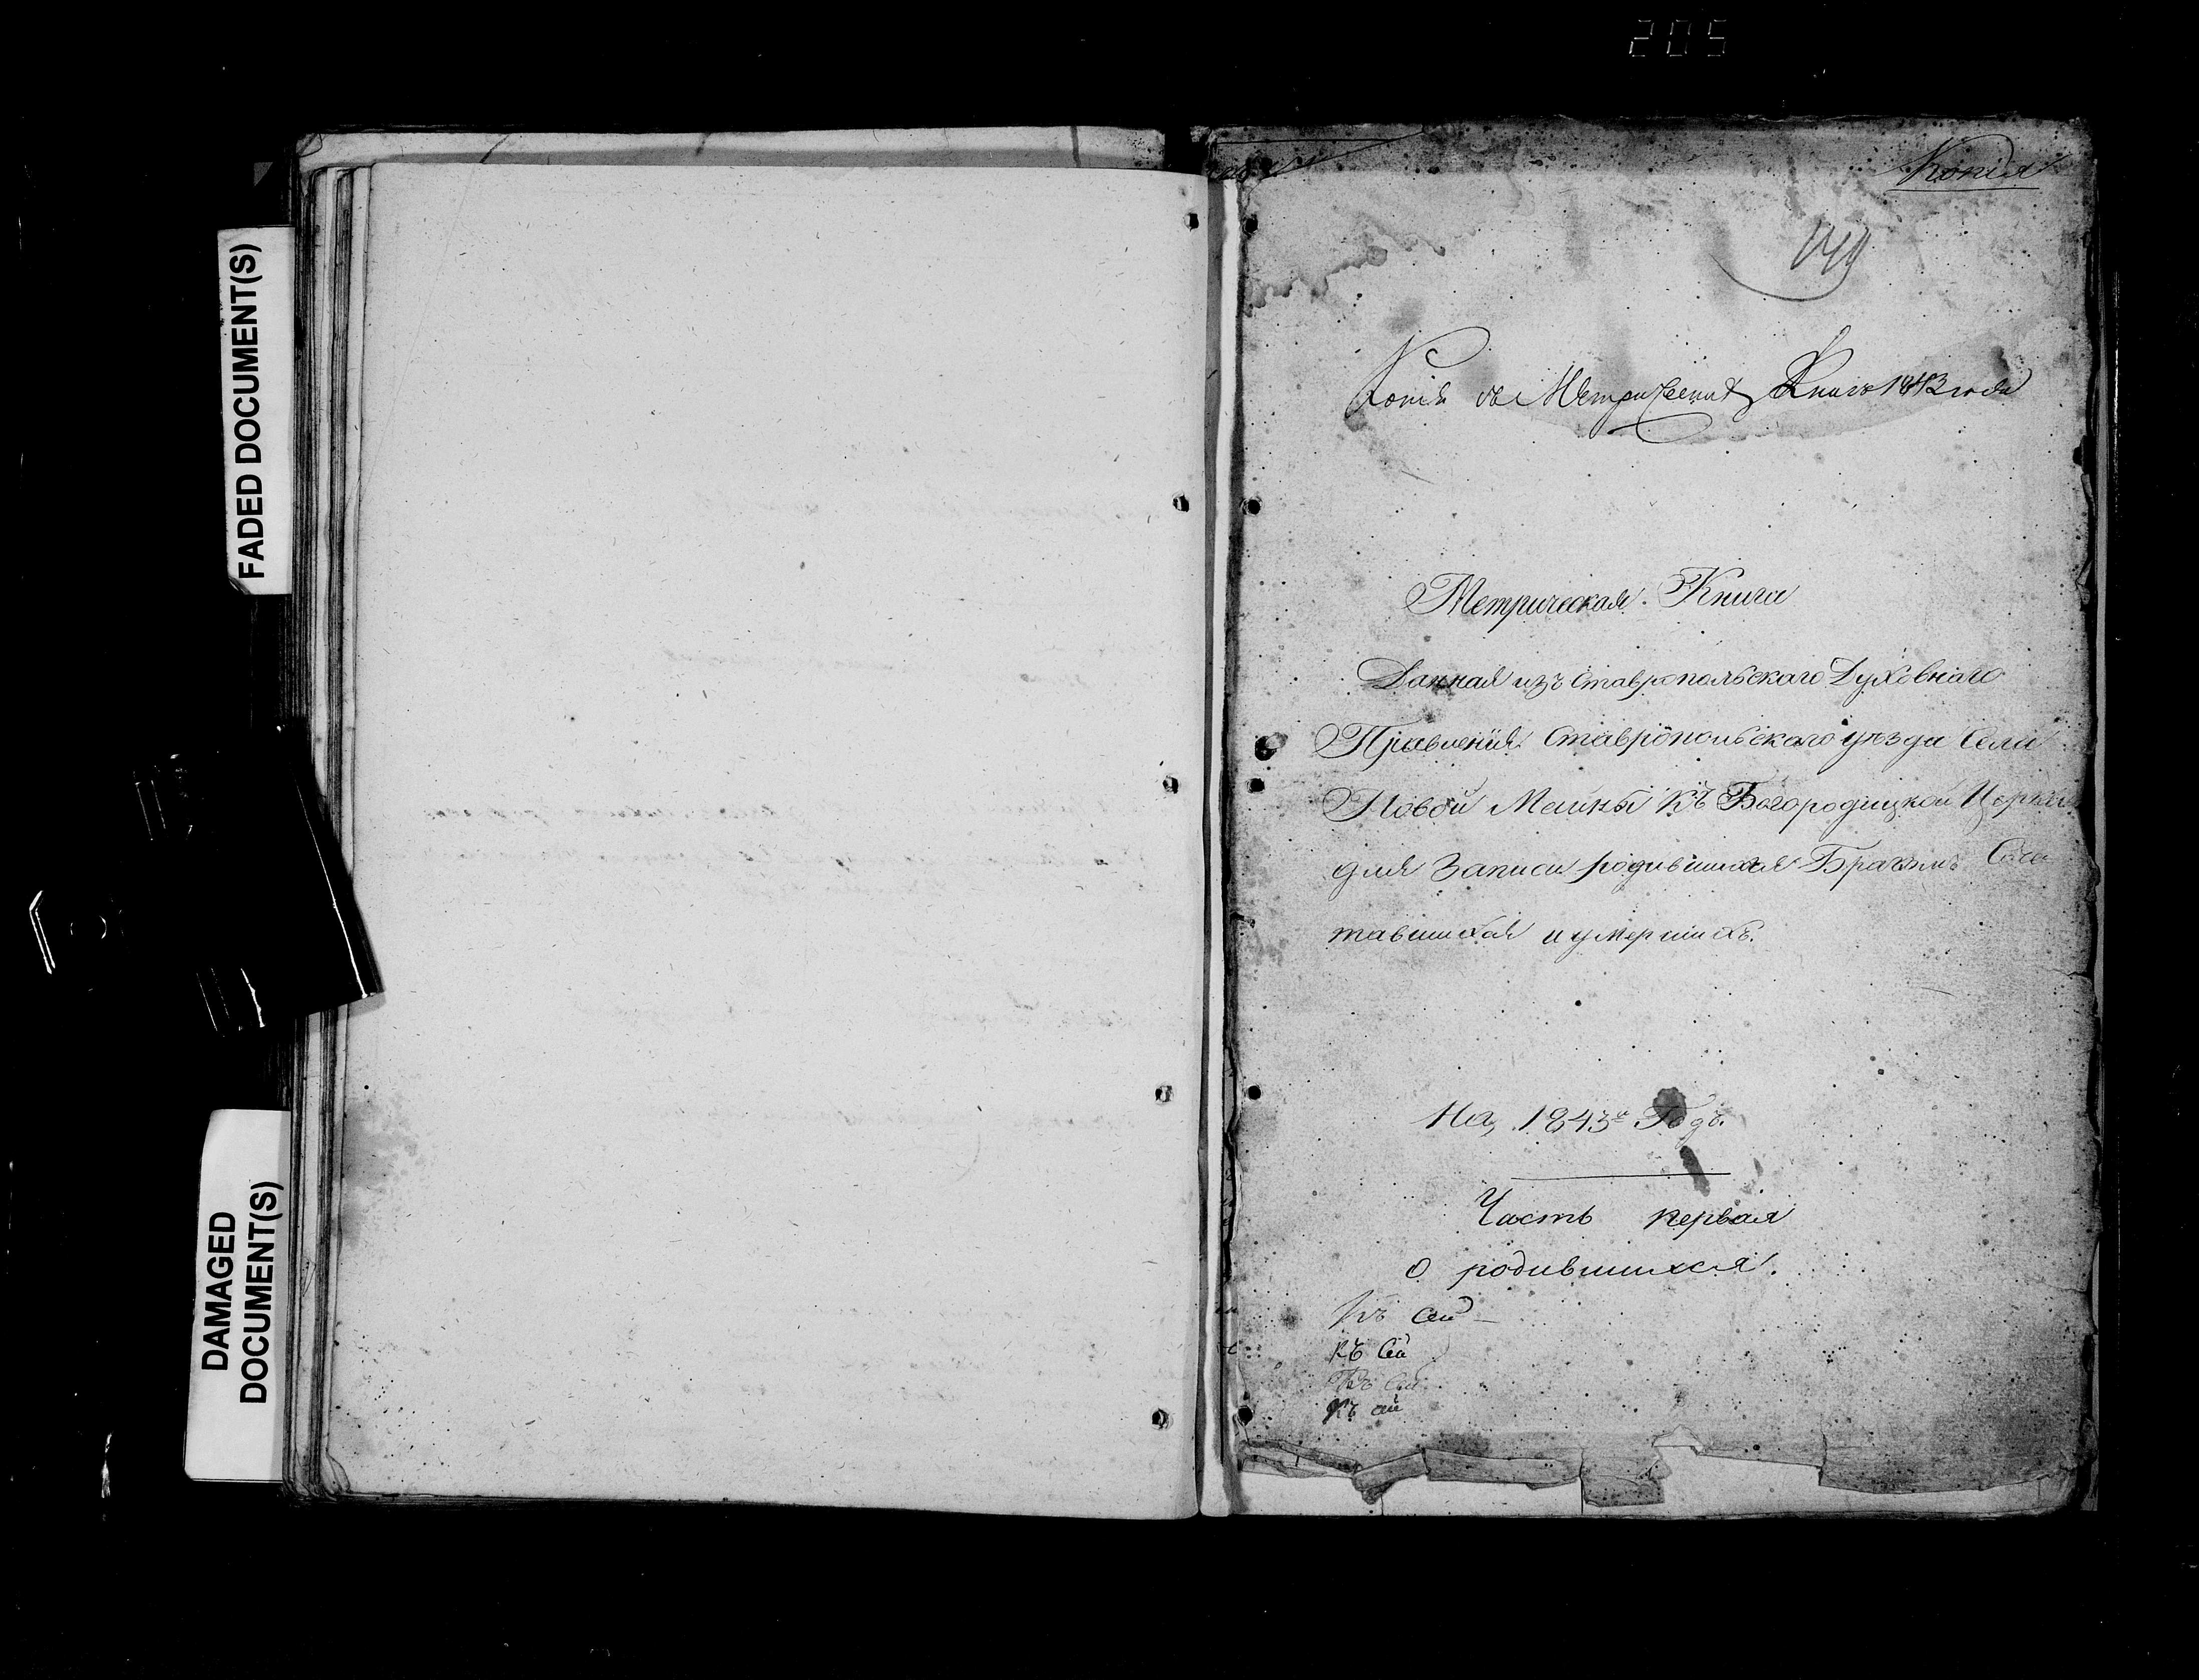 205
FADED DOCUMENT(S)
DAMAGED
DOCUMENT(S)
Копія
Копія съ Метрической Книги 1843 года
Метрическая Книга
Данная изъ Ставропольскаго Духовнаго
Правленія Ставропольскаго уѣзда Села
Новой Маины къ Богородицкой Церкви
для записи родившихся Бракомъ Соче
тавшихся и умершихъ.
На 1843й Годъ.
Часть первая
о родившихся.
Къ сей
Къ сей
Къ сей
Къ сей